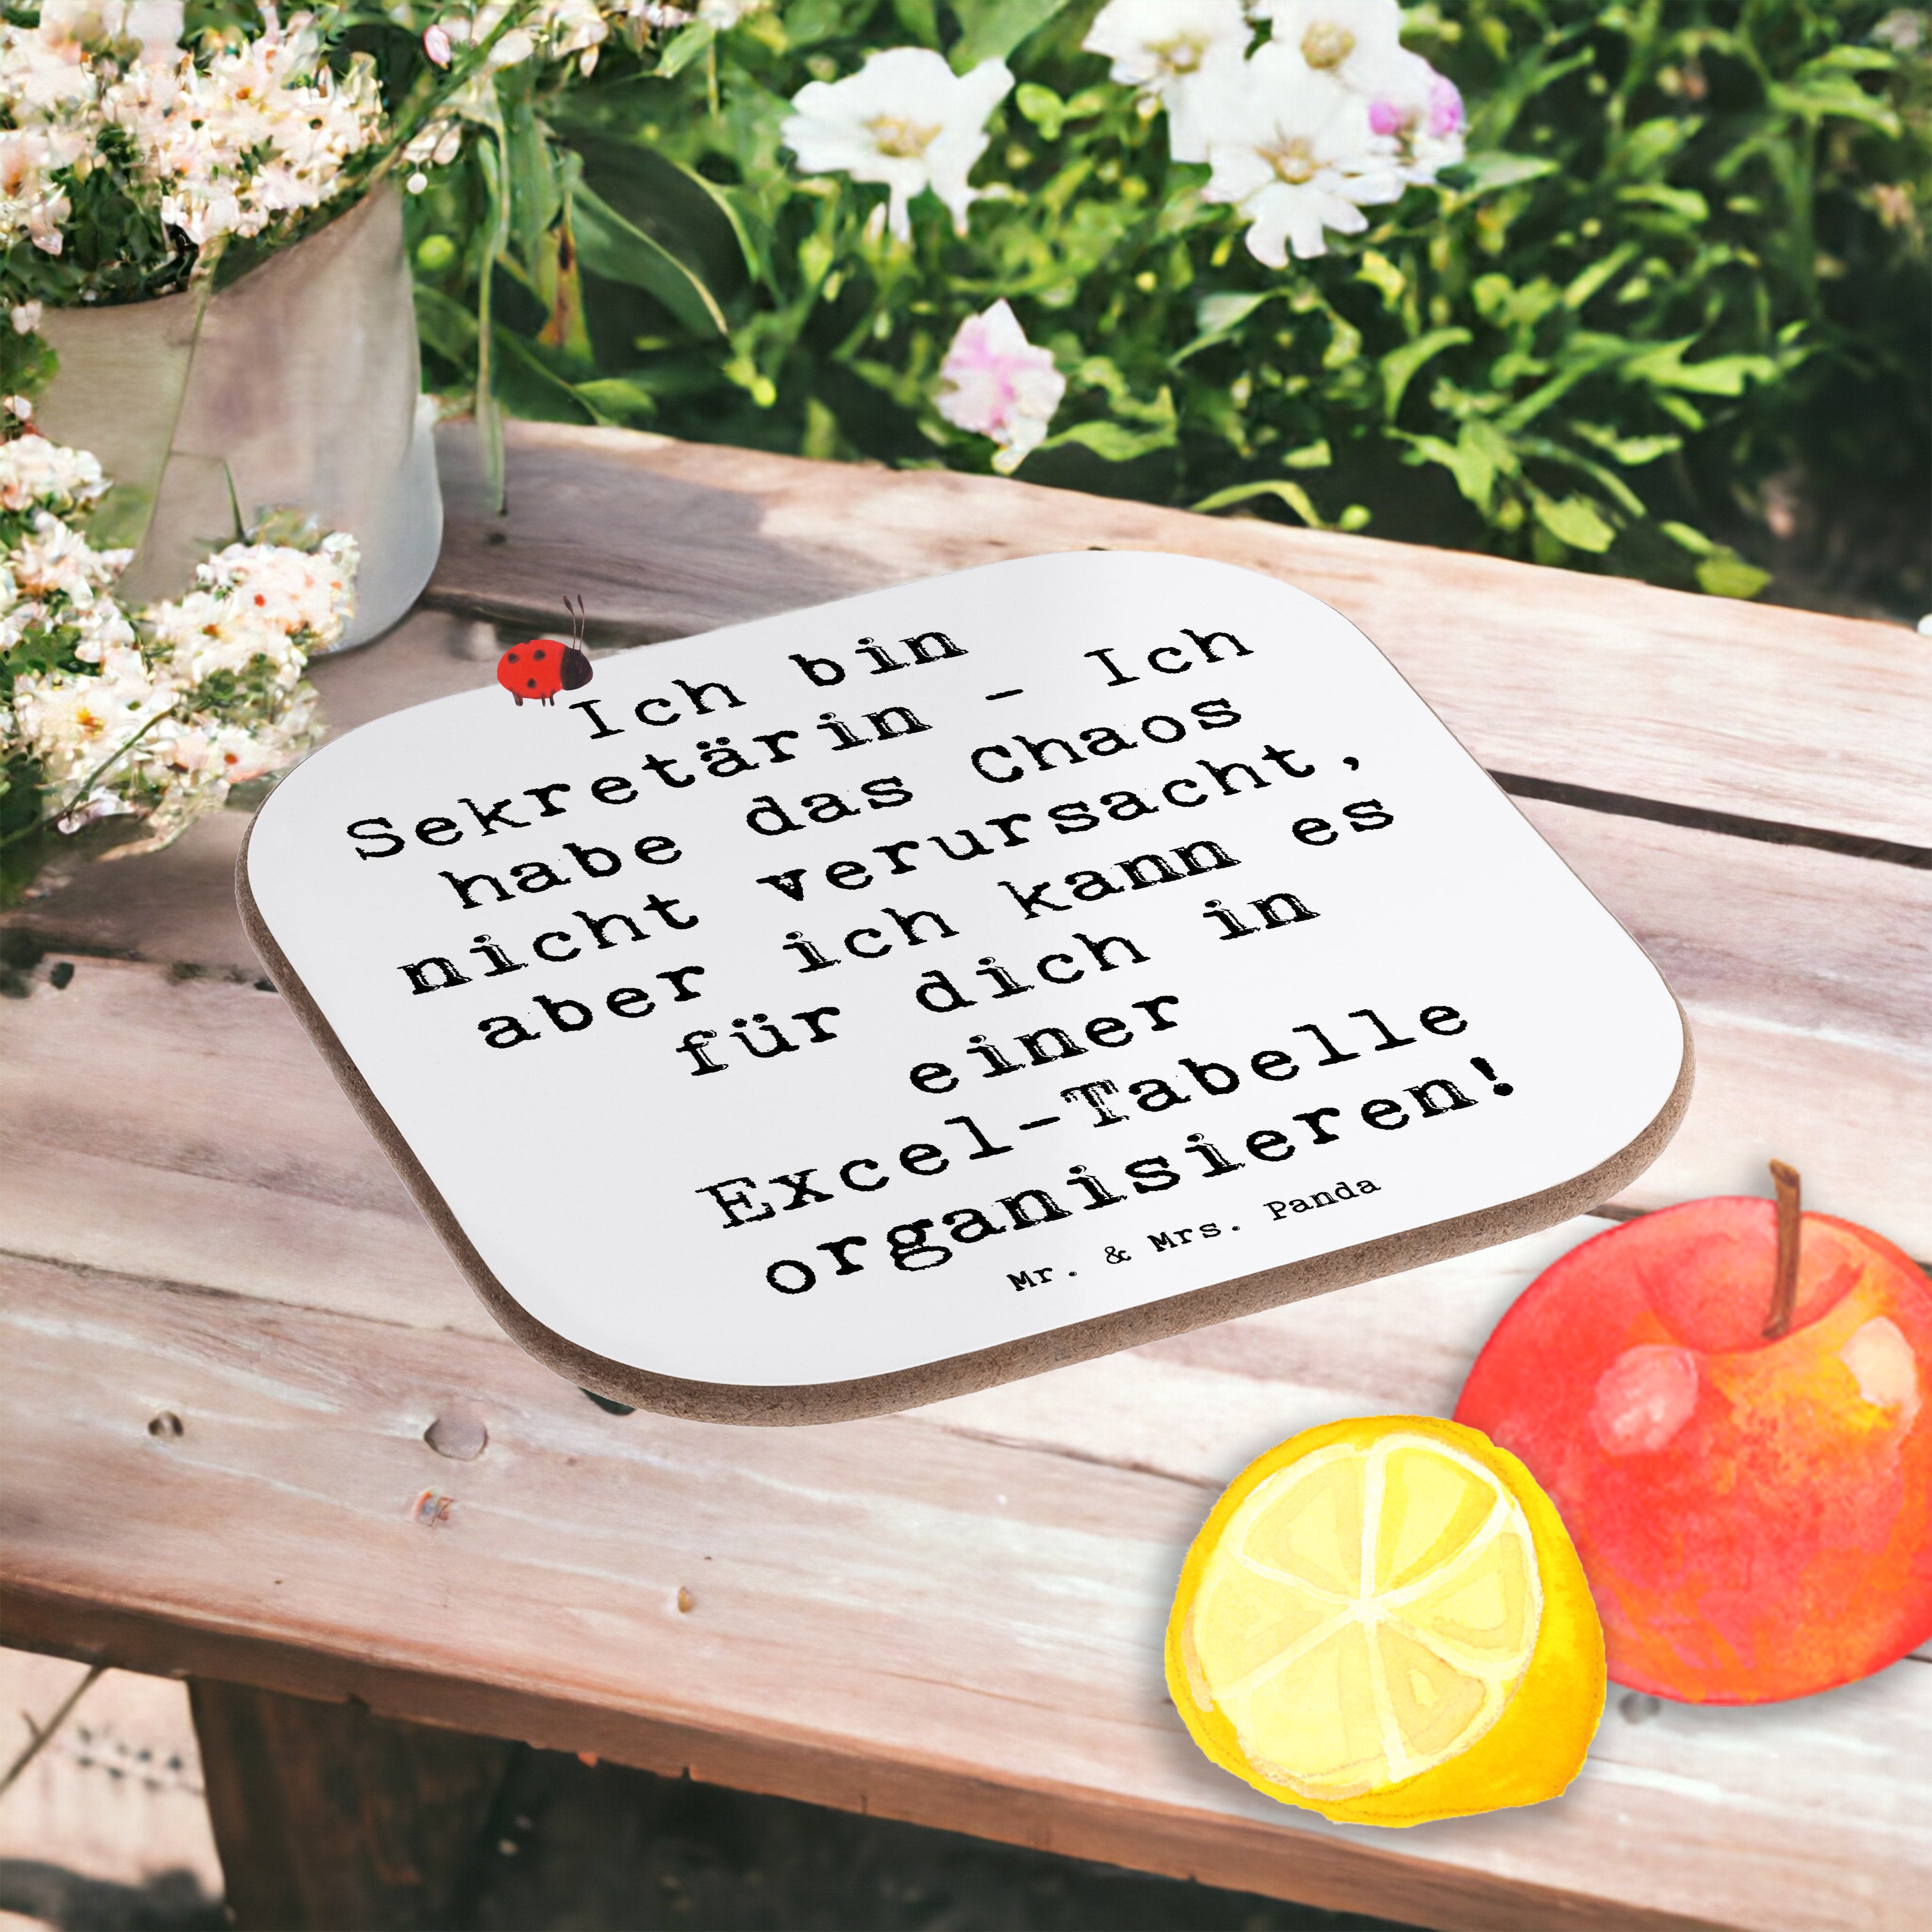 Ich bin
Sekretärin - Ich
habe das Chaos
nicht verursacht,
aber ich kann es
für dich in
einer
Excel-Tabelle
organisieren!
Mr. & Mrs. Panda